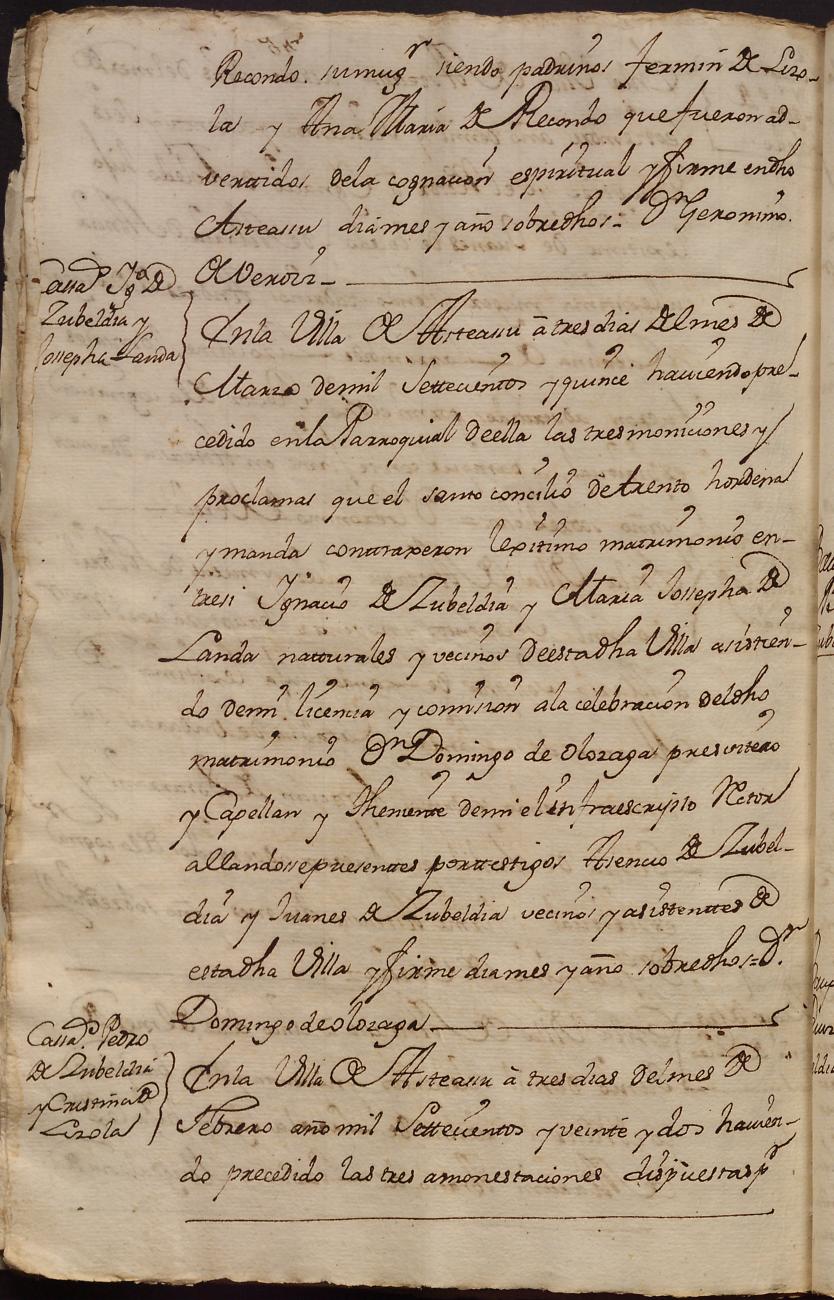 Recondo. su mugr siendo padrinos fermin de Liro-
la y Ana Maria de Recondo que fueron ad-
verttidos dela cognacion espiritual y firme en dho
Asteassu dia mes y año sobredhos= Dn Geronimo.
de
Cassado Igo de
Zubeldia y
Jossepha Landa
En la Villa de Asteassu â tres dias del mes de
Marzo de mil Settecientos y quince haviendo pre-
cedido en la Parroquial de ella las tres moniciones y
proclamas que el santo concilio de trento hordena
y manda conttraxeron lexitimo matrimonio en-
tresi Ignacio de Zubeldia y Maria Jossepha de
Landa natturales y vecinos de esta dha Villa asistien-
do de mi licencia y comision a la celebracion del dho
matrimonio Dn Domingo de Olozaga presvitero
y Capellan y Theniente de mi el infraescripto Rector
allandosse presenttes por ttestigos Asencio de Zubel-
dia y Juanes de Zubeldia vecinos y asistenttes de
esta dha Villa y firme dia mes y año sobredhos= Dr
Domingo de Olozaga
Cassado Pedro
de Zubeldia
y Cristina de
Lizola
En la Villa de Asteassu â tres dias del mes de
Febrero año mil Settecientos y veinte y dos havien-
do precedido las tres amonestaciones dispuestas pr